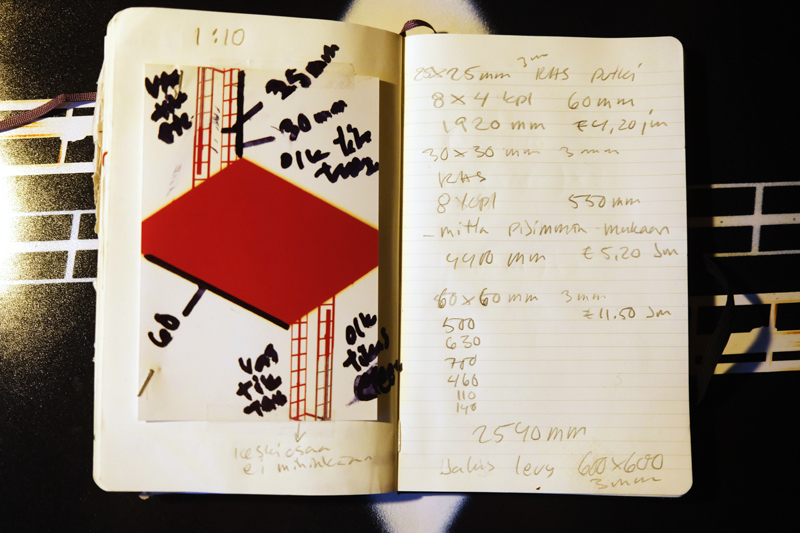 1:10
25 mm
30 mm
olk tik
60
keskiosaa
ei mihinkään
3 mm
25x25mm RHS putki
8 x 4 kpl 60mm
1920 mm €4,20 jm
30x30 mm 3 mm
RHS
8 kpl 550 mm
- mitta pisimmän mukaan
4400 mm €5,20 Jm
60x60 mm 3 mm
€11.50 Jm
500
630
700
460
110
140
2540mm
Jalus levy 600x600
3mm